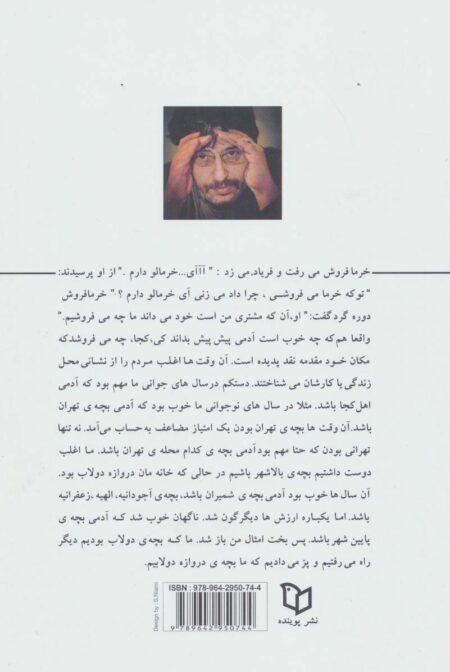 خرمافروش می رفت و فریاد می زد : " آآآی...خرمالو دارم ." از او پرسیدند:
"توکه خرما می فروشی ، چرا داد می زنی آی خرمالو دارم ؟ " خرمافروش
دوره گرد گفت: " او،آن که مشتری من است خود می داند ما چه می فروشیم."
واقعا هم که چه خوب است آدمی پیش پیش بداند کی،کجا، چه می فروشدکه
مکان خود مقدمه نقد پدیده است. آن وقت ها اغلب مردم را از نشانی محل
زندگی یا کارشان می شناختند. دستکم درسال های جوانی ما مهم بود که آدمی
اهل کجا باشد. مثلا در سال های نوجوانی ما خوب بود که آدمی بچه ی تهران
باشد.آن وقت ها بچه ی تهران بودن یک امتیاز مضاعف به حساب می آمد. نه تنها
تهرانی بودن که حتا مهم بود آدمی بچه ی کدام محله ی تهران باشد. ما اغلب
دوست داشتیم بچه ی بالاشهر باشیم در حالی که خانه مان دروازه دولاب بود.
آن سال ها خوب بود آدمی بچه ی شمیران باشد، بچه ی آجودانیه، الهیه ،زعفرانیه
باشد. اما یکباره ارزش ها دیگرگون شد. ناگهان خوب شد که آدمی بچه ی
پایین شهرباشد. پس بخت امثال من باز شد. ما که بچه ی دولاب بودیم دیگر
راه می رفتیم و پز می دادیم که ما بچه ی دروازه دولابیم.
ISBN : 978-964-2950-74-4
9 789642 950744
Design by : S.Niami
نشر پوینده